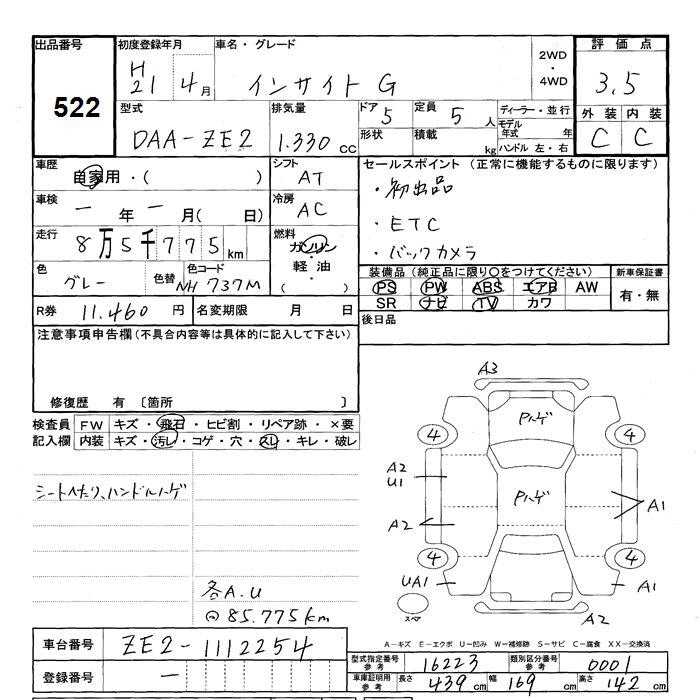 出品番号
522
初度登録年月
H21 4月
車名・グレード
インサイト G
2WD・4WD
評価点
3.5
型式
DAA-ZE2
排気量
1.330 cc
ドア 5
定員 5人
形状
積載 kg
ディーラー・並行
モデル年式 年
ハンドル 左・右
外装 内装
C C
車歴
自家用・( )
シフト
AT
車検
一年一月( 日)
冷房
AC
走行
8万5千775km
燃料
ガソリン
軽油
・( )
色
グレー
色替
色コード
NH 737M
R券 11.460円
名変期限 月 日
セールスポイント (正常に機能するものに限ります)
・初出品
・ETC
・バックカメラ
装備品(純正品に限り○をつけてください)
PS PW ABS エアB AW
SR ナビ TV カワ
新車保証書
有・無
後日品
注意事項申告欄(不具合内容等は具体的に記入して下さい)
修復歴 有 〔箇所 〕
検査員記入欄
FW キズ・飛石・ヒビ割・リペア跡・×要
内装 キズ・汚レ・コゲ・穴・スレ・キレ・破レ
シートヘたり、ハンドルハゲ
各A.U
85.775km
A3
Pハゲ
4 4
A2
U1
Pハゲ
A1
A2
4 4
UA1
A1
スペア
A2
A-キズ E-エクボ U-凹み W-補修跡 S-サビ C-腐食 XX-交換済
車台番号 ZE2-1112254
登録番号 一
型式指定番号参考 16223
類別区分番号参考 0001
車庫証明用参考 長さ 439cm 幅 169cm 高さ 142cm